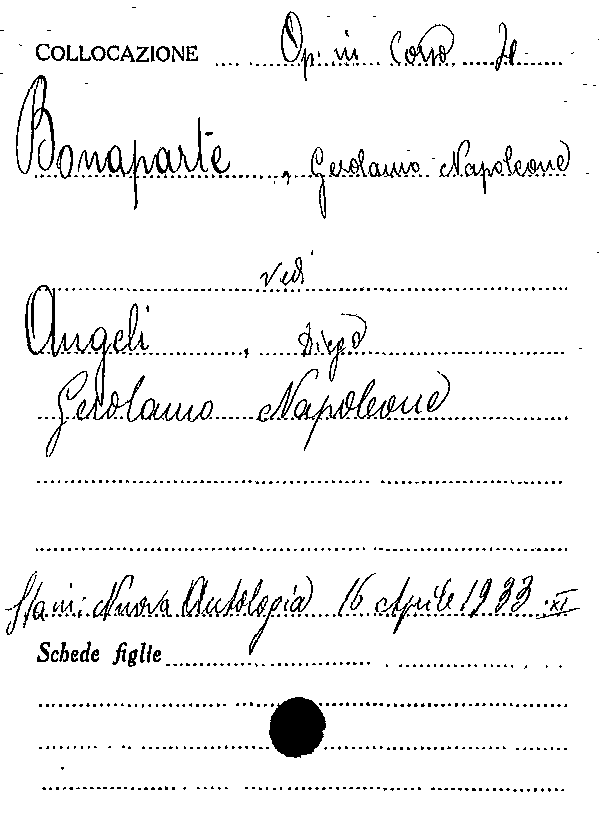 COLLOCAZIONE Op. in Corso
Bonaparte, Gerolamo Napoleone
vedi
Angeli, Diego
Gerolamo Napoleone
Sta in: Nuova Antologia 16 Aprile 1933 .XI
Schede figlie